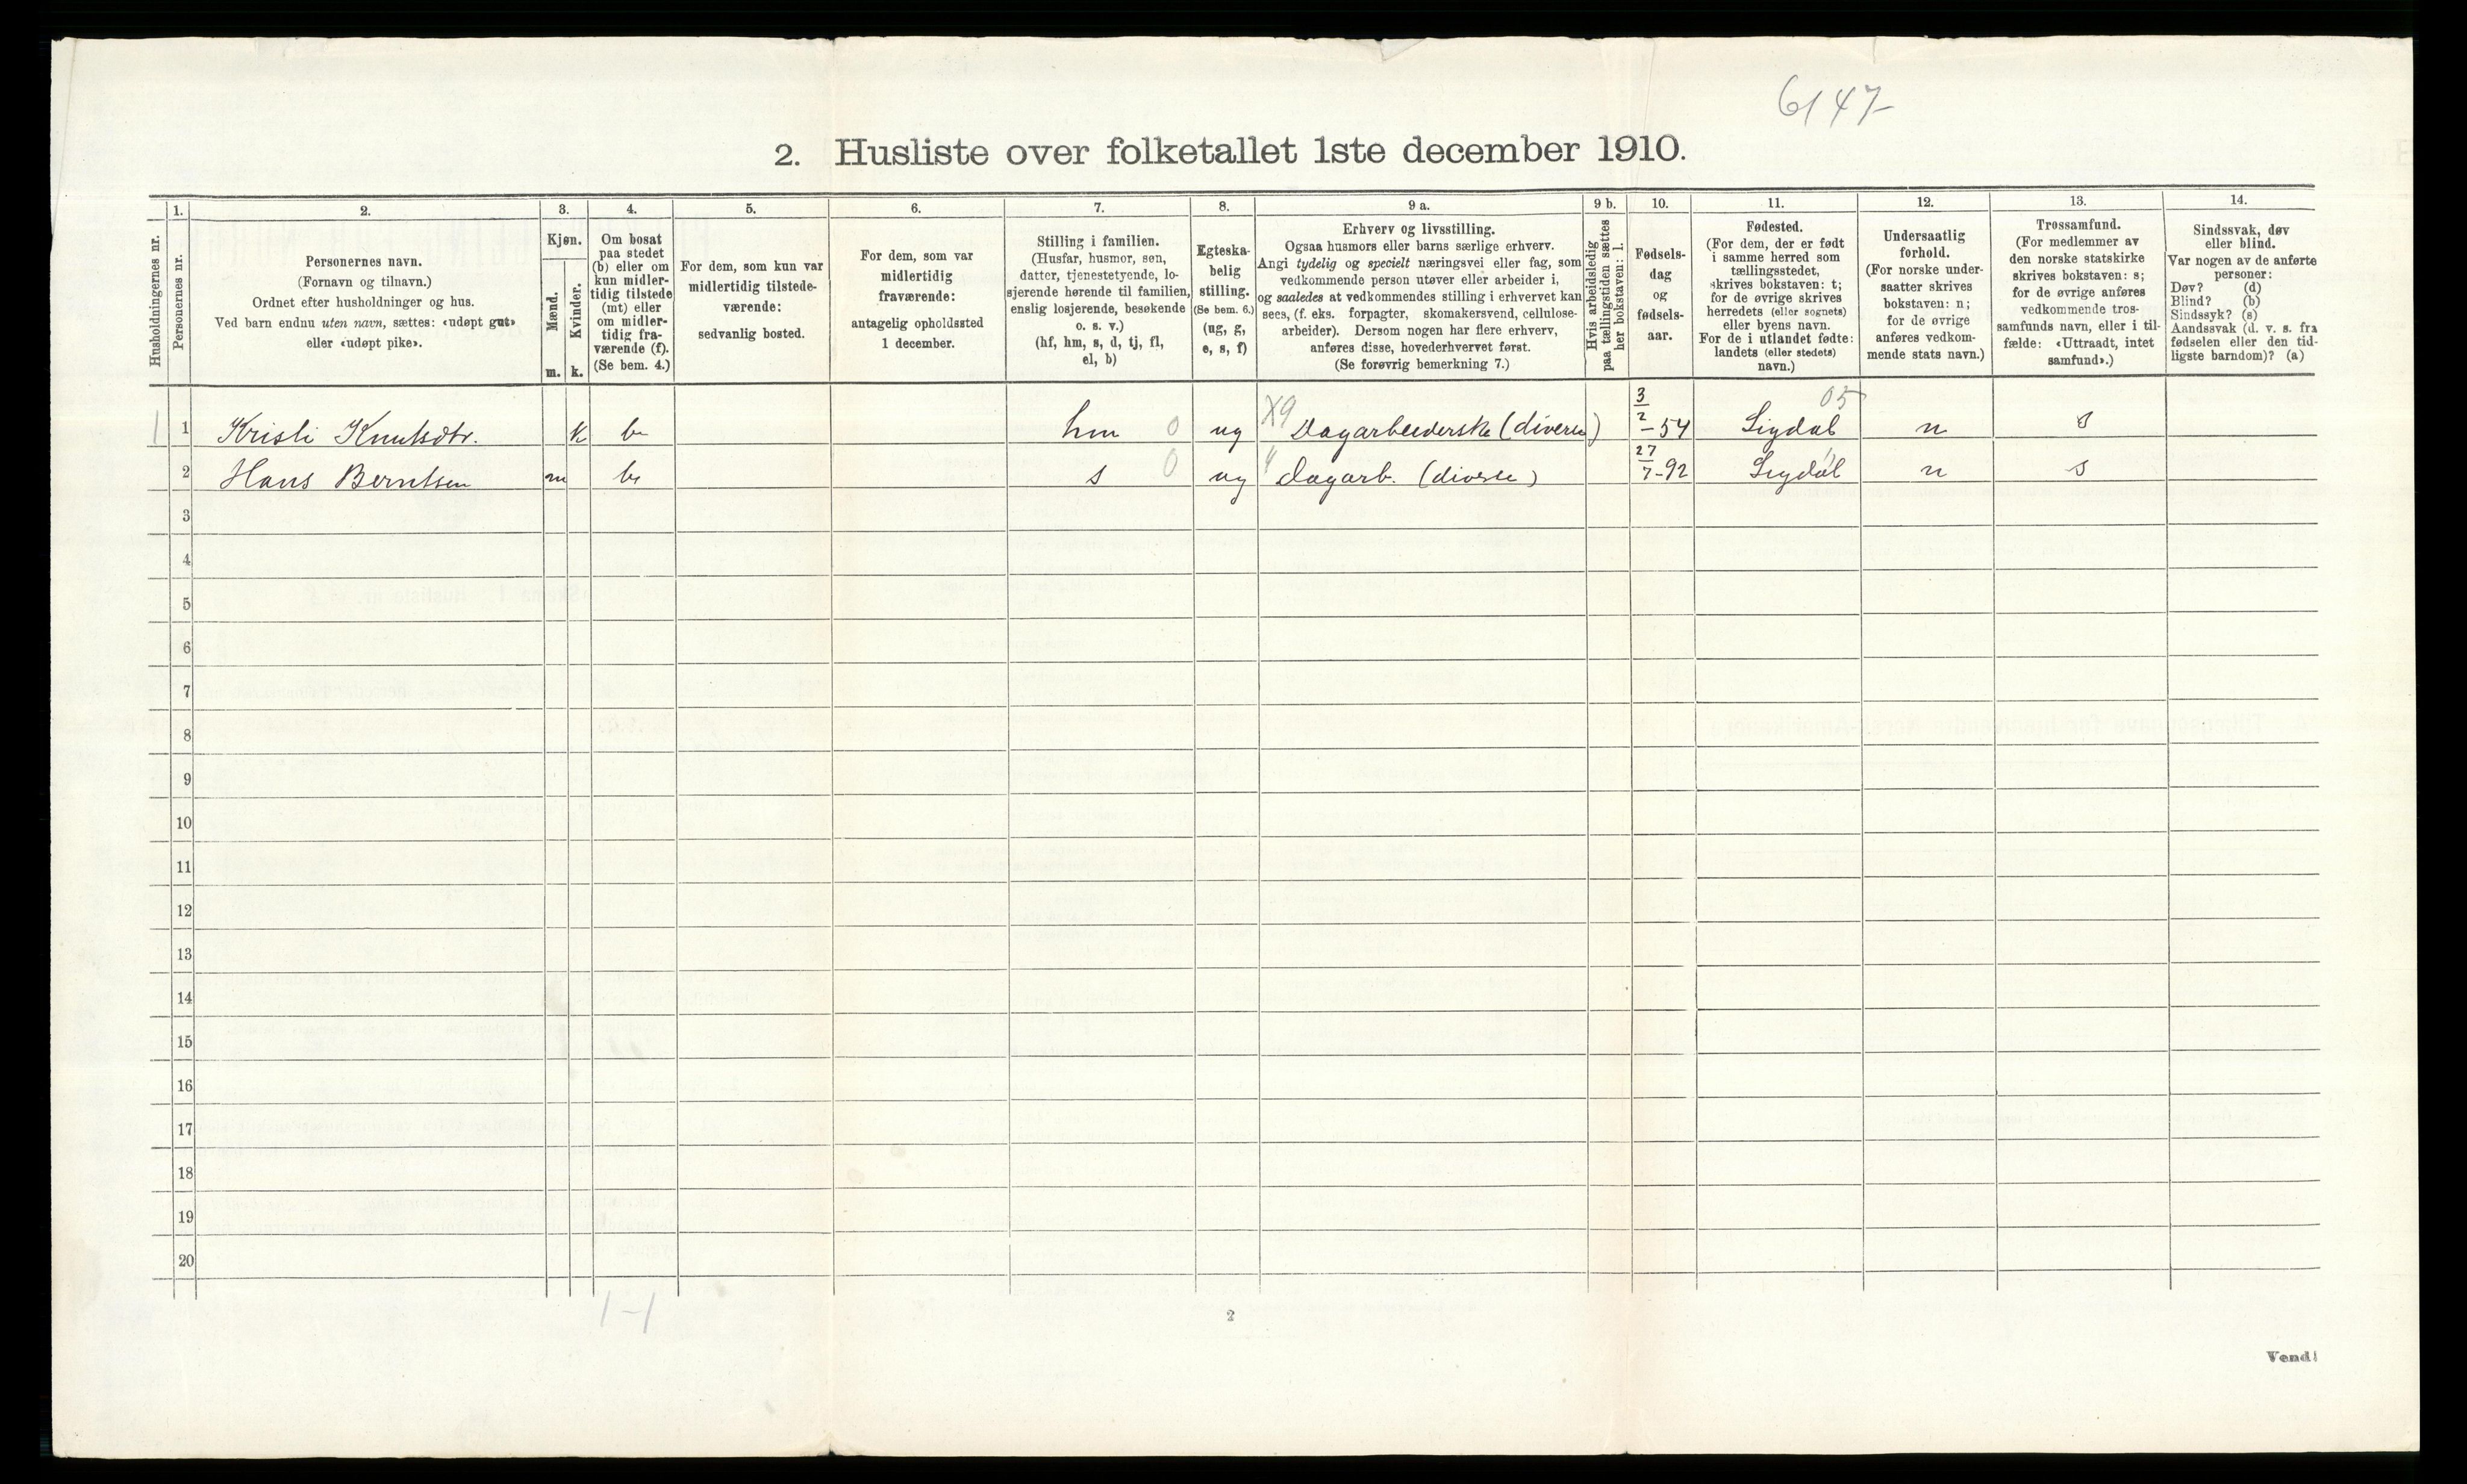 6147
2. Husliste over folketallet 1ste december 1910.
Husholdningernes nr.
1.
Personernes nr.
2.
Personernes navn.
(Fornavn og tilnavn.)
Ordnet efter husholdninger og hus.
Ved barn endnu uten navn, sættes: «udøpt gut»
eller «udøpt pike».
3.
Kjøn.
Mænd.
m.
Kvinder.
k.
4.
Om bosat
paa stedet
(b) eller om
kun midler-
tidig tilstede
(mt) eller
om midler-
tidig fra-
værende (f).
(Se bem. 4.)
5.
For dem, som kun var
midlertidig tilstede-
værende:
sedvanlig bosted.
6.
For dem, som var
midlertidig
fraværende:
antagelig opholdssted
1 december.
7.
Stilling i familien.
(Husfar, husmor, søn,
datter, tjenestetyende, lo-
sjerende hørende til familien,
enslig losjerende, besøkende
o. s. v.)
(hf, hm, s, d, tj, fl,
el, b)
8.
Egteska-
belig
stilling.
(Se bem. 6.)
(ug, g,
e, s, f)
9 a.
Erhverv og livsstilling.
Ogsaa husmors eller barns særlige erhverv.
Angi tydelig og specielt næringsvei eller fag, som
vedkommende person utøver eller arbeider i,
og saaledes at vedkommendes stilling i erhvervet kan
sees, (f. eks. forpagter, skomakersvend, cellulose-
arbeider). Dersom nogen har flere erhverv,
anføres disse, hovederhvervet først.
(Se forøvrig bemerkning 7.)
9 b.
Hvis arbeidsledig
paa tællingstiden sættes
her bokstaven: l.
10.
Fødsels-
dag
og
fødsels-
aar.
11.
Fødested.
(For dem, der er født
i samme herred som
tællingsstedet,
skrives bokstaven: t;
for de øvrige skrives
herredets (eller sognets)
eller byens navn.
For de i utlandet fødte:
landets (eller stedets)
navn.)
12.
Undersaatlig
forhold.
(For norske under-
saatter skrives
bokstaven: n;
for de øvrige
anføres vedkom-
mende stats navn.)
13.
Trossamfund.
(For medlemmer av
den norske statskirke
skrives bokstaven: s;
for de øvrige anføres
vedkommende tros-
samfunds navn, eller i til-
fælde: «Uttraadt, intet
samfund».)
14.
Sindssvak, døv
eller blind.
Var nogen av de anførte
personer:
Døv? (d)
Blind? (b)
Sindssyk? (s)
Aandssvak (d. v. s. fra
fødselen eller den tid-
ligste barndom)? (a)
1 1 Kristi Knutsdtr. k b hm 0 ug X9 Dagarbeiderske (diverse) 3/2-54 Sigdal 05 n s
2 Hans Berntsen m b s 0 ug Dagarb. (diverse) 27/7-92 Sigdal n s
3
4
5
6
7
8
9
10
11
12
13
14
15
16
17
18
19
20
1-1
2
Vend!